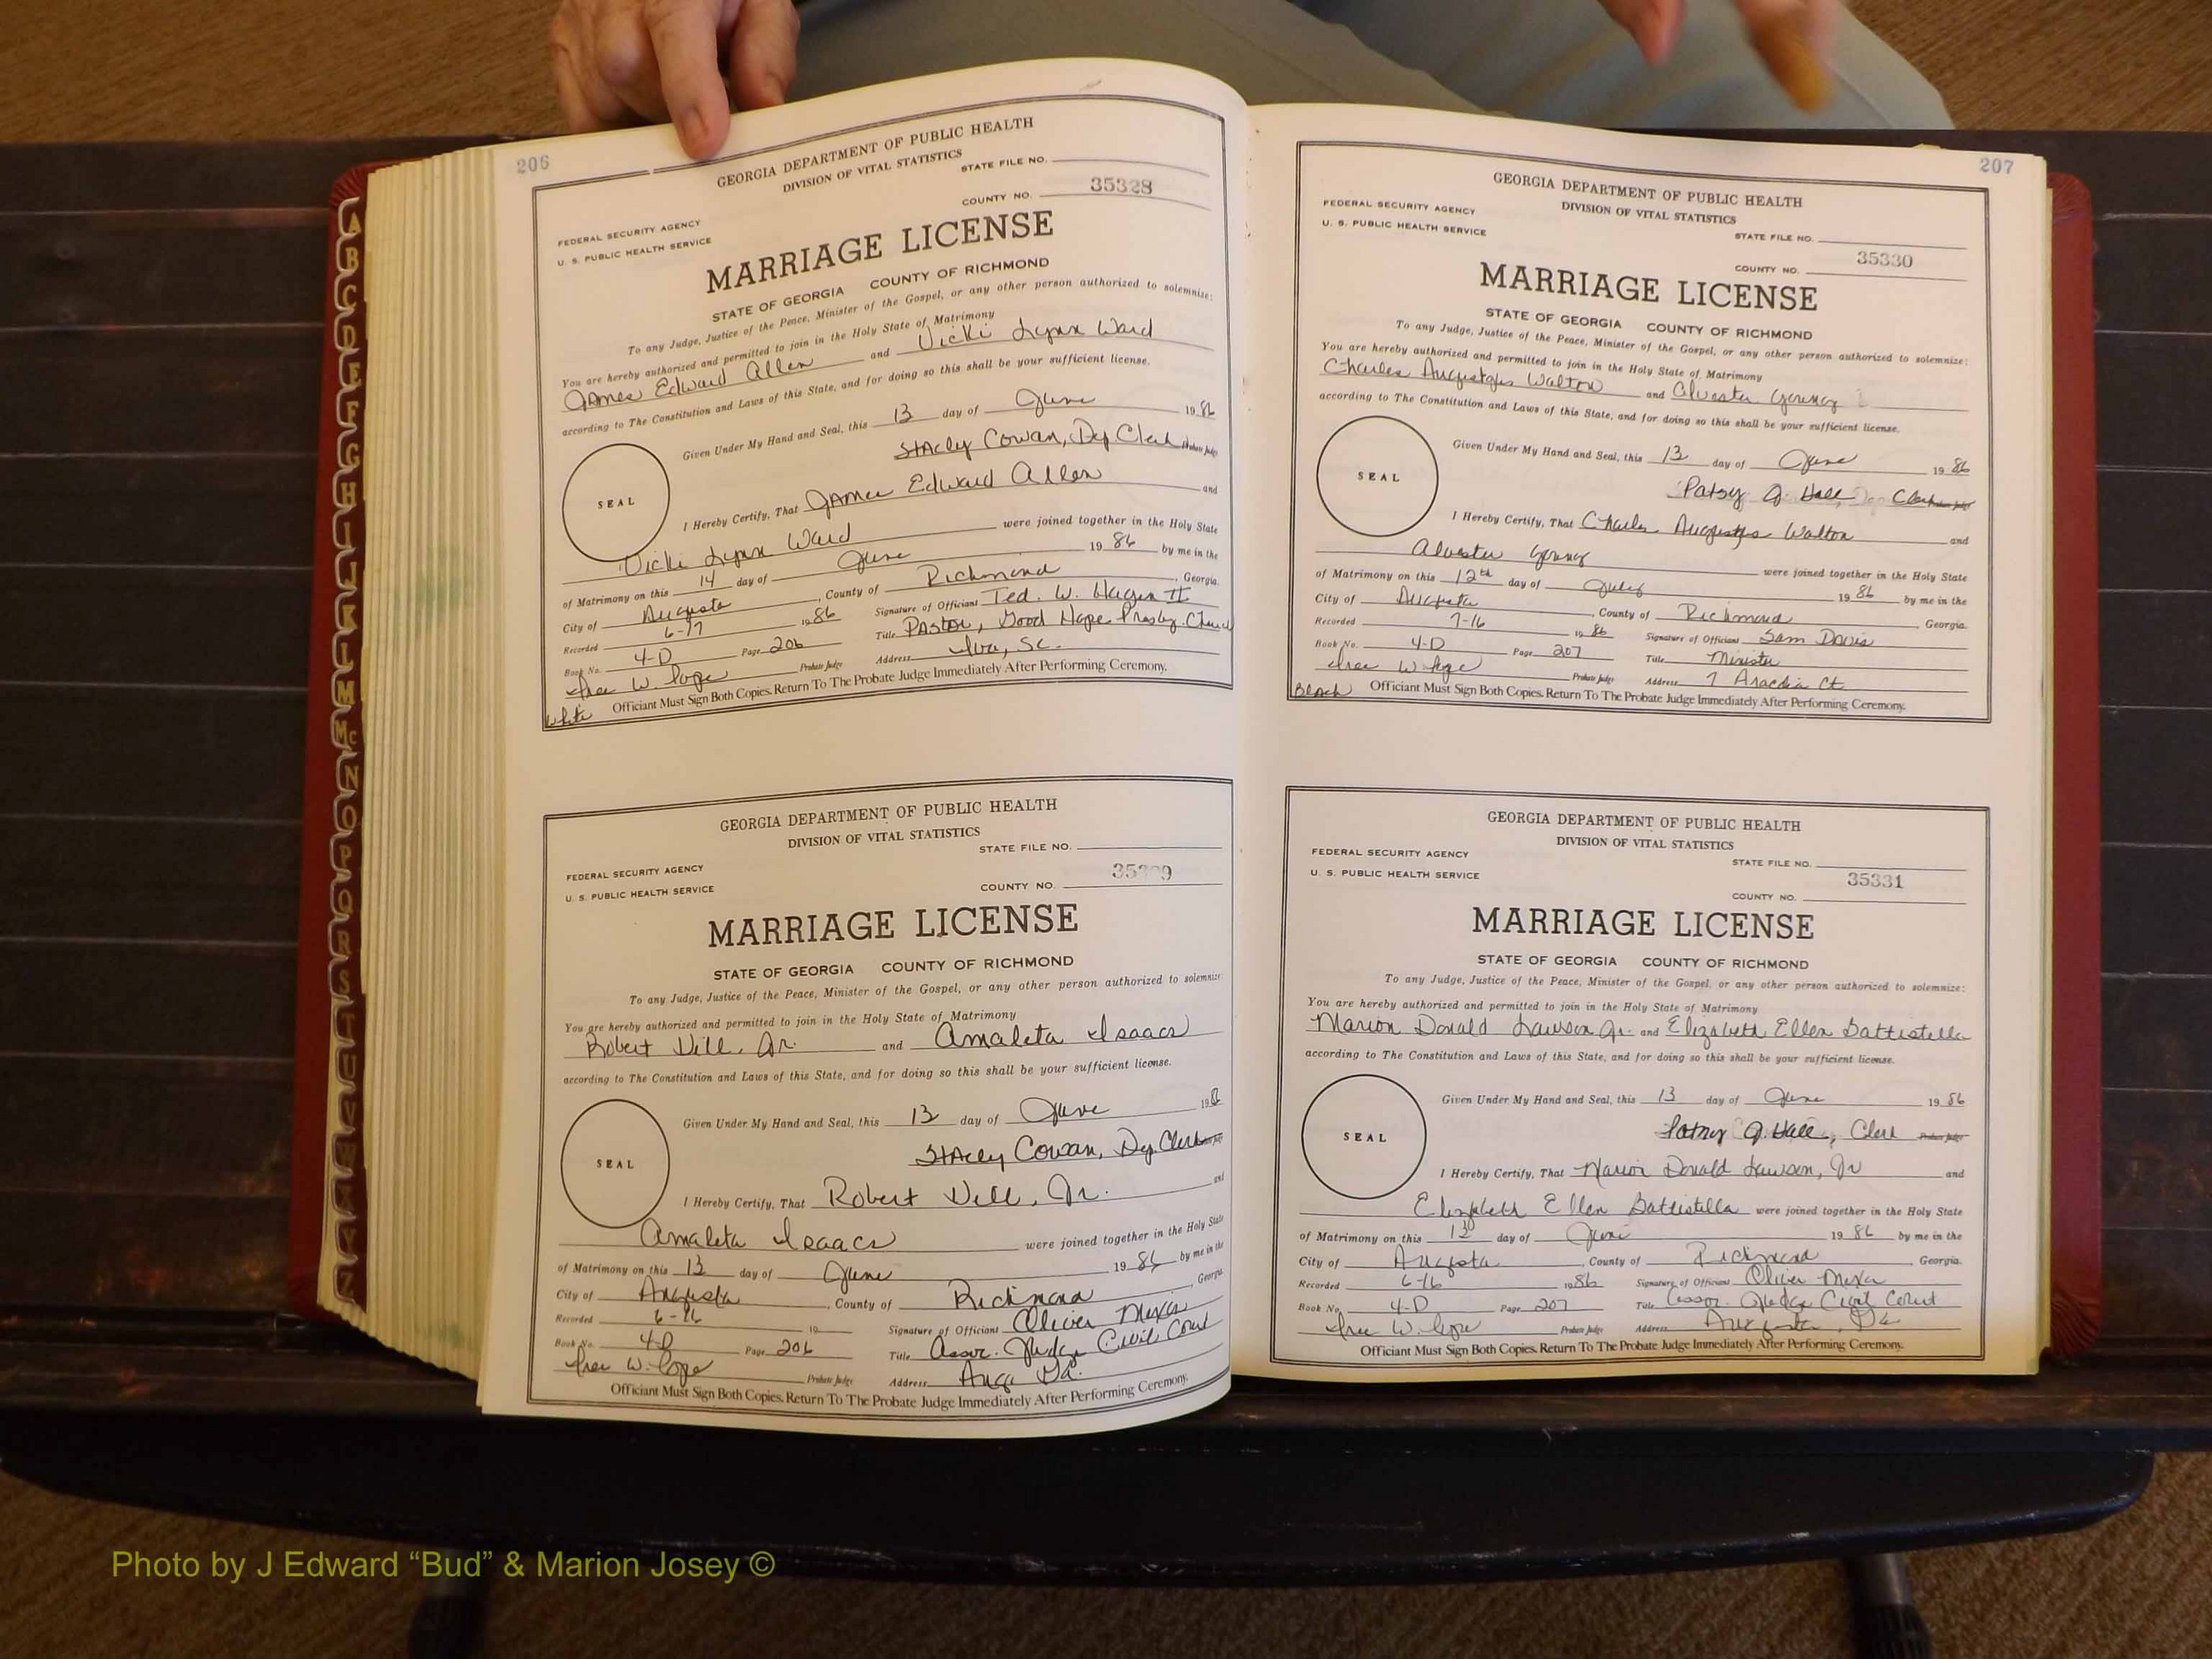 206
GEORGIA DEPARTMENT OF PUBLIC HEALTH
DIVISION OF VITAL STATISTICS
STATE FILE NO.
FEDERAL SECURITY AGENCY
U. S. PUBLIC HEALTH SERVICE
COUNTY NO. 35328
MARRIAGE LICENSE
STATE OF GEORGIA COUNTY OF RICHMOND
To any Judge, Justice of the Peace, Minister of the Gospel, or any other person authorized to solemnize:
You are hereby authorized and permitted to join in the Holy State of Matrimony
James Edward Allen and Vicki Lynn Ward
according to The Constitution and Laws of this State, and for doing so this shall be your sufficient license.
Given Under My Hand and Seal, this 13 day of June 19 86
Stacey Cowan, Dep Clerk
SEAL
I Hereby Certify, That James Edward Allen and
Vicki Lynn Ward were joined together in the Holy State
of Matrimony on this 14 day of June 19 86 by me in the
City of Augusta, County of Richmond, Georgia.
Recorded 6-17 19 86 Signature of Officiant Ted. W. Hagen II
Book No. 4-D Page 206 Title Pastor, Good Hope Presby. Church
W. Pope Probate Judge Address Iva, SC.
White Officiant Must Sign Both Copies. Return To The Probate Judge Immediately After Performing Ceremony.
GEORGIA DEPARTMENT OF PUBLIC HEALTH
DIVISION OF VITAL STATISTICS
STATE FILE NO.
FEDERAL SECURITY AGENCY
U. S. PUBLIC HEALTH SERVICE
COUNTY NO.
MARRIAGE LICENSE
STATE OF GEORGIA COUNTY OF RICHMOND
To any Judge, Justice of the Peace, Minister of the Gospel, or any other person authorized to solemnize:
You are hereby authorized and permitted to join in the Holy State of Matrimony
Robert Dill, Jr. and Amaleta Isaacs
according to The Constitution and Laws of this State, and for doing so this shall be your sufficient license.
Given Under My Hand and Seal, this 13 day of June 19 86
Stacey Cowan, Dep. Clerk
SEAL
I Hereby Certify, That Robert Dill, Jr. and
Amaleta Isaacs were joined together in the Holy State
of Matrimony on this 13 day of June 19 86 by me in the
City of Augusta, County of Richmond, Georgia
Recorded 6-16 19 Signature of Officiant Oliver
Book No. 4-D Page 206 Title Assoc. Judge Civil Court
W. Pope Probate Judge Address Aug. Ga.
Officiant Must Sign Both Copies. Return To The Probate Judge Immediately After Performing Ceremony.
207
GEORGIA DEPARTMENT OF PUBLIC HEALTH
DIVISION OF VITAL STATISTICS
FEDERAL SECURITY AGENCY
U. S. PUBLIC HEALTH SERVICE
STATE FILE NO.
COUNTY NO. 35330
MARRIAGE LICENSE
STATE OF GEORGIA COUNTY OF RICHMOND
To any Judge, Justice of the Peace, Minister of the Gospel, or any other person authorized to solemnize:
You are hereby authorized and permitted to join in the Holy State of Matrimony
Charles Augustus Walton and Alvester Young
according to The Constitution and Laws of this State, and for doing so this shall be your sufficient license.
Given Under My Hand and Seal, this 13 day of June 19 86
Patsy J. Hall, Clerk
SEAL
I Hereby Certify, That Charles Augustus Walton and
Alvester Young were joined together in the Holy State
of Matrimony on this 12th day of July 19 86 by me in the
City of Augusta, County of Richmond, Georgia.
Recorded 7-16 19 86 Signature of Officiant Sam Davis
Book No. 4-D Page 207 Title Minister
W. Pope Probate Judge Address 7 Aracdia Ct
Black Officiant Must Sign Both Copies. Return To The Probate Judge Immediately After Performing Ceremony.
GEORGIA DEPARTMENT OF PUBLIC HEALTH
DIVISION OF VITAL STATISTICS
FEDERAL SECURITY AGENCY
U. S. PUBLIC HEALTH SERVICE
STATE FILE NO.
COUNTY NO. 35331
MARRIAGE LICENSE
STATE OF GEORGIA COUNTY OF RICHMOND
To any Judge, Justice of the Peace, Minister of the Gospel, or any other person authorized to solemnize:
You are hereby authorized and permitted to join in the Holy State of Matrimony
Marion Donald Lawson Jr. and Elizabeth Ellen Battistella
according to The Constitution and Laws of this State, and for doing so this shall be your sufficient license.
Given Under My Hand and Seal, this 13 day of June 19 86
Patsy J. Hall, Clerk Probate Judge
SEAL
I Hereby Certify, That Marion Donald Lawson, Jr and
Elizabeth Ellen Battistella were joined together in the Holy State
of Matrimony on this 13 day of June 19 86 by me in the
City of Augusta, County of Richmond, Georgia.
Recorded 6-16 19 86 Signature of Officiant Oliver
Book No. 4-D Page 207 Title Assoc. Judge Civil Court
W. Pope Probate Judge Address Augusta, Ga
Officiant Must Sign Both Copies. Return To The Probate Judge Immediately After Performing Ceremony.
Photo by J Edward “Bud” & Marion Josey ©